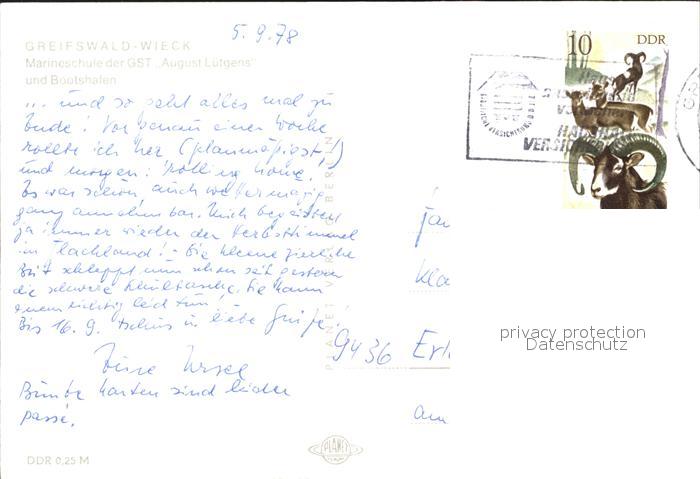 5.9.78
GREIFSWALD-WIECK
Marineschule der GST „August Lütgens"
und Bootshafen
... und so geht alles mal zu
Ende! Vor genau einer Woche
rollte ich her (planmäßigst!)
und morgen: rolling home.
Es war schon auch wettermäßig
ganz annehmbar. Mich begeistert
ja immer wieder der Herbsthimmel
im Flachland! - Die kleine zierliche
Brit schleppt nun schon seit gestern
die schwere Schultasche. Sie kann
einem richtig leid tun!
Bis 16.9. tschüs u. liebe Grüße.
Eure Ursel
Bunte Karten sind leider
passé.
DDR 0,25 M
PLANET VERLAG BERLIN
PLANET
10 DDR
STAATLICHE VERSICHERUNG DER DDR
Fam
Kla
9436 Erl
am
privacy protection
Datenschutz